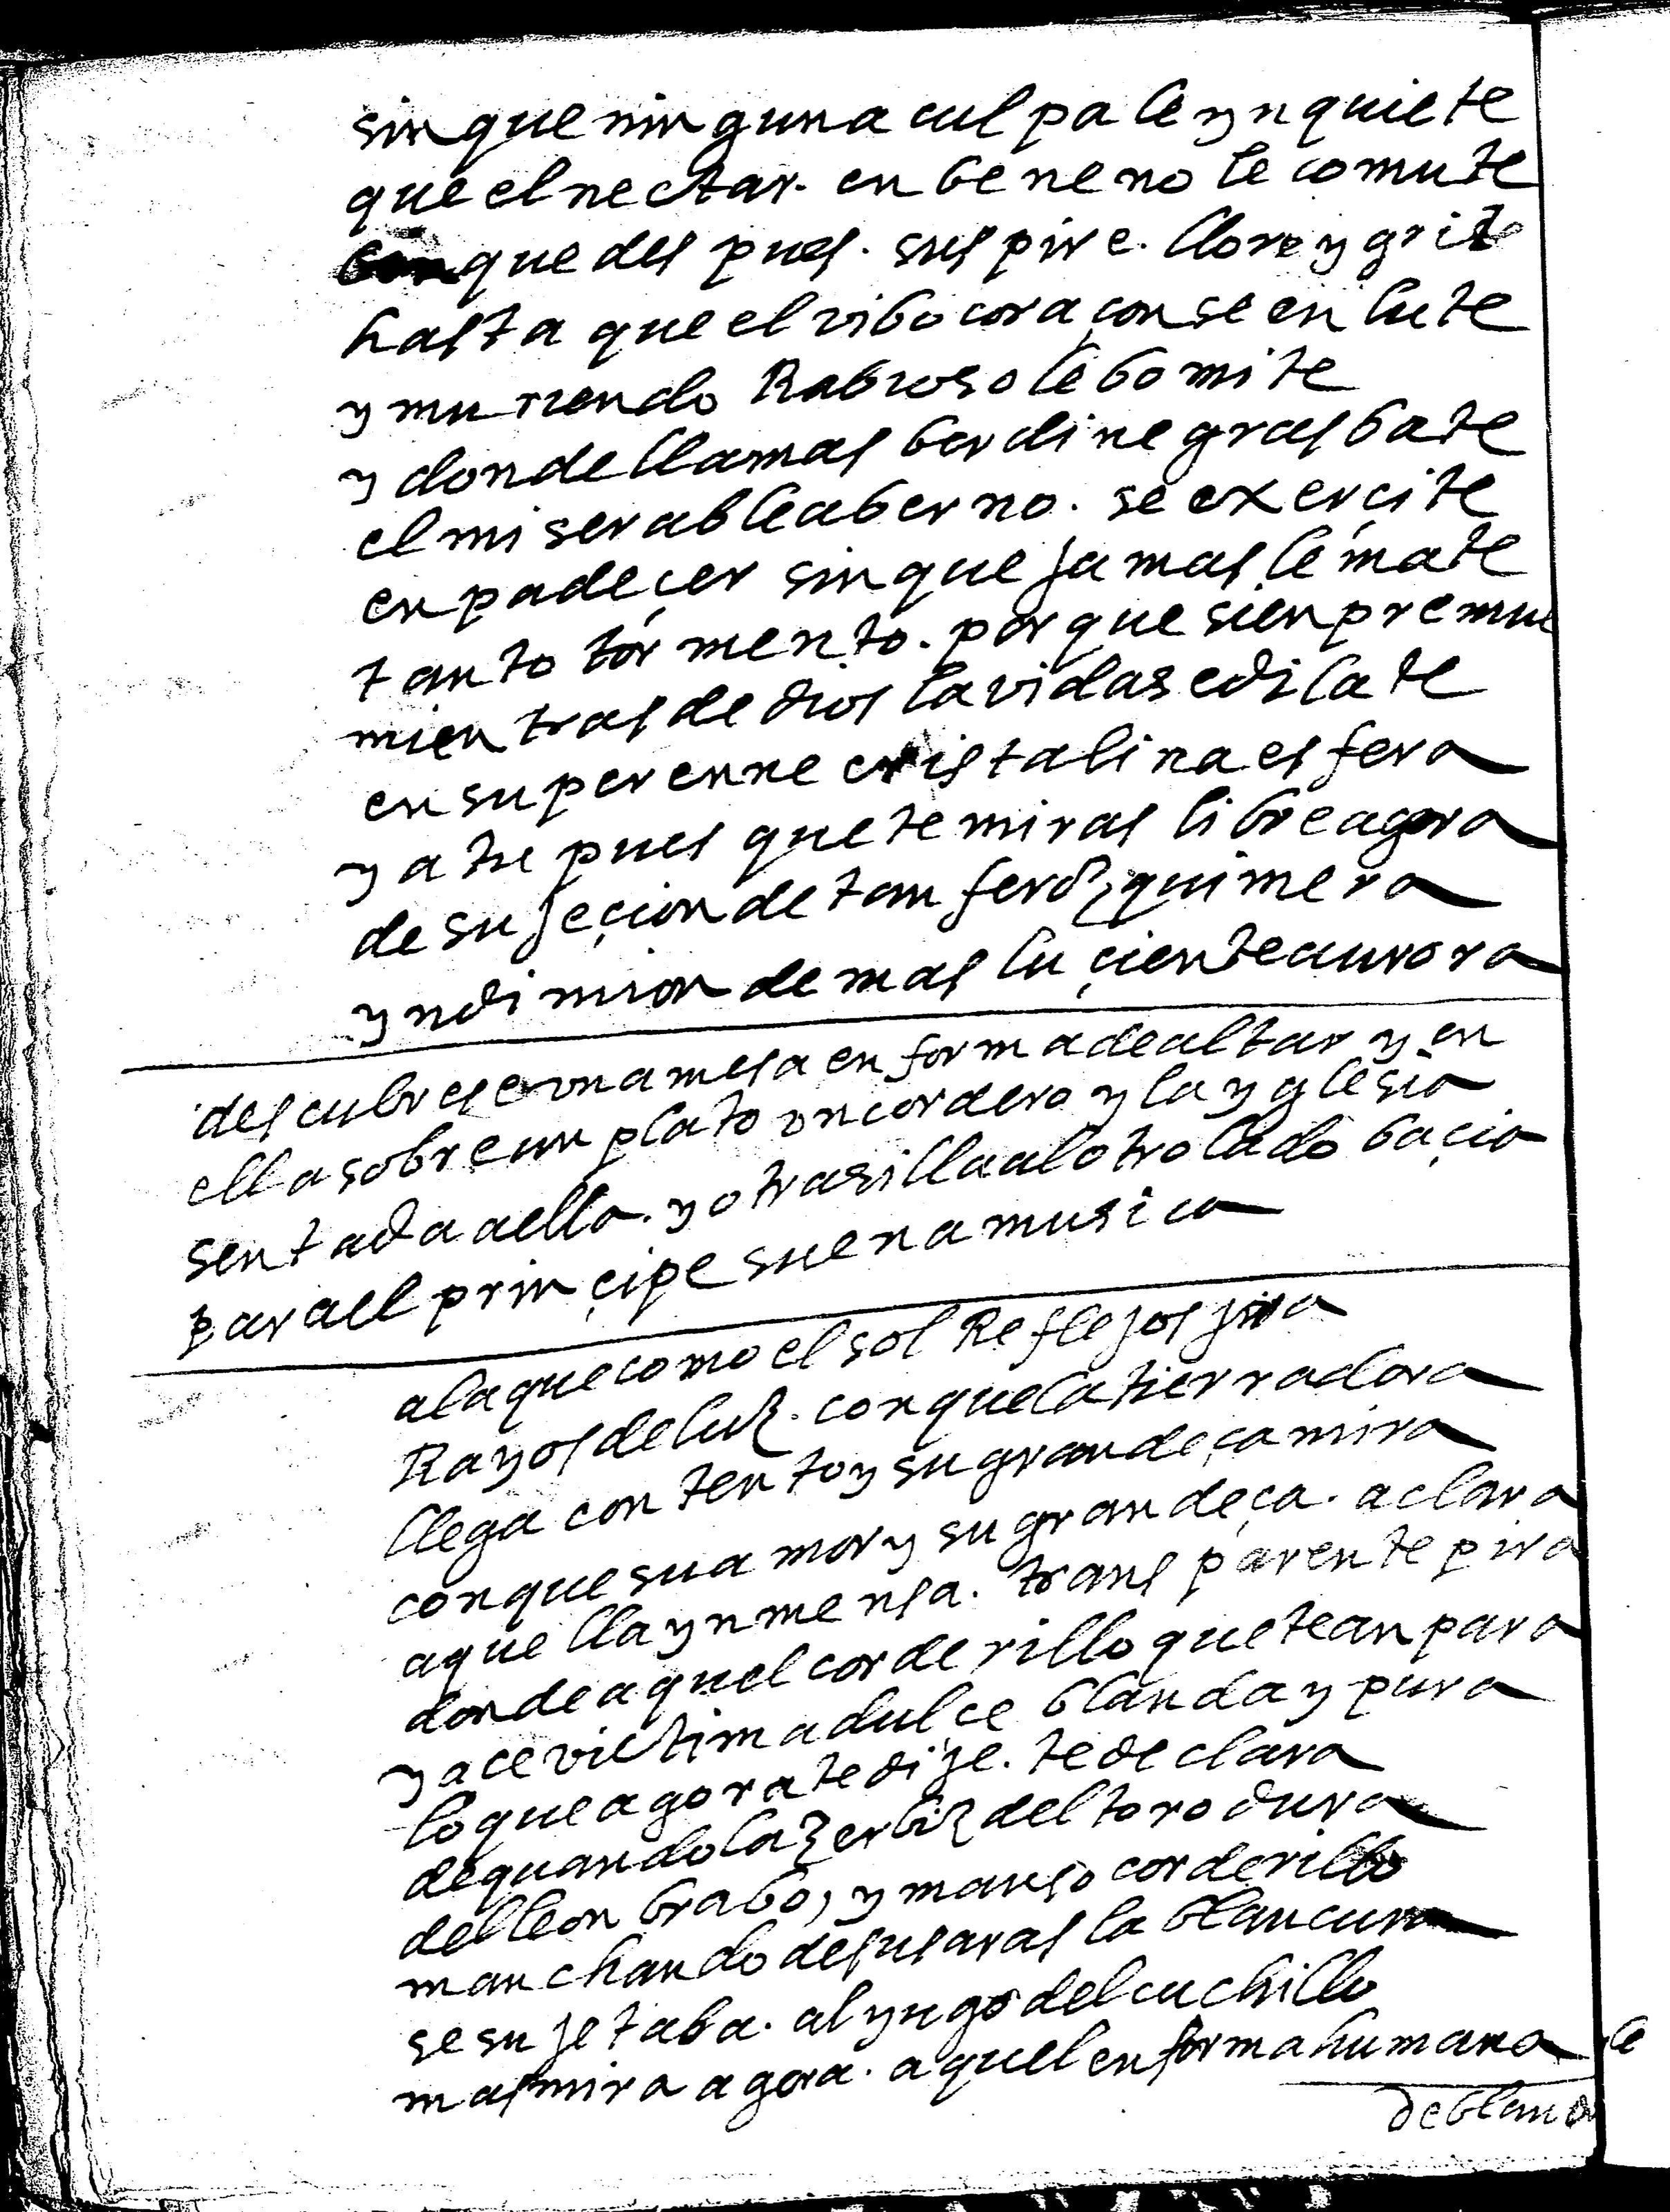 sin que ninguna culpa le ynquiete
que el nectar. en beneno le comute
con que despues. suspire. llore y grite
hasta que el vibo coraçon se enlute
y muriendo Rabioso le bomite
y donde llamas berdinegras bate
el miserable aberno. se exerçite
en padeçer sin que jamas le mate
tanto tormento. por que sienpre mue
mientras de dios la vida se dilate
en su perenne cristalina esfera
y a tu pues que te miras libre agora
de sujeçion de tan feroz quimera
yndimion de mas luçiente aurora
descubrese vna mesa en forma de altar y en
ella sobre un plato vn cordero y la yglesia
sentada a ella. y otra silla al otro lado baçia
para el prinçipe suena musica
a la que como el sol Reflejos jira
Rayos de luz. con que la tierra dora
llega contento y su grandeça mira
con que su amor y su grandeça. aclara
aquella ynmensa. transparente pira
donde aquel corderillo que te anpara
yace victima dulce blanda y pura
lo que agora te dije. te declara
de quando la zerbiz del toro dura
del leon brabo, y manso corderillo
manchando de sus aras la blancura
se sujetaba. al yugo del cuchillo
mas mira agora. aquel en forma humana
de blanc